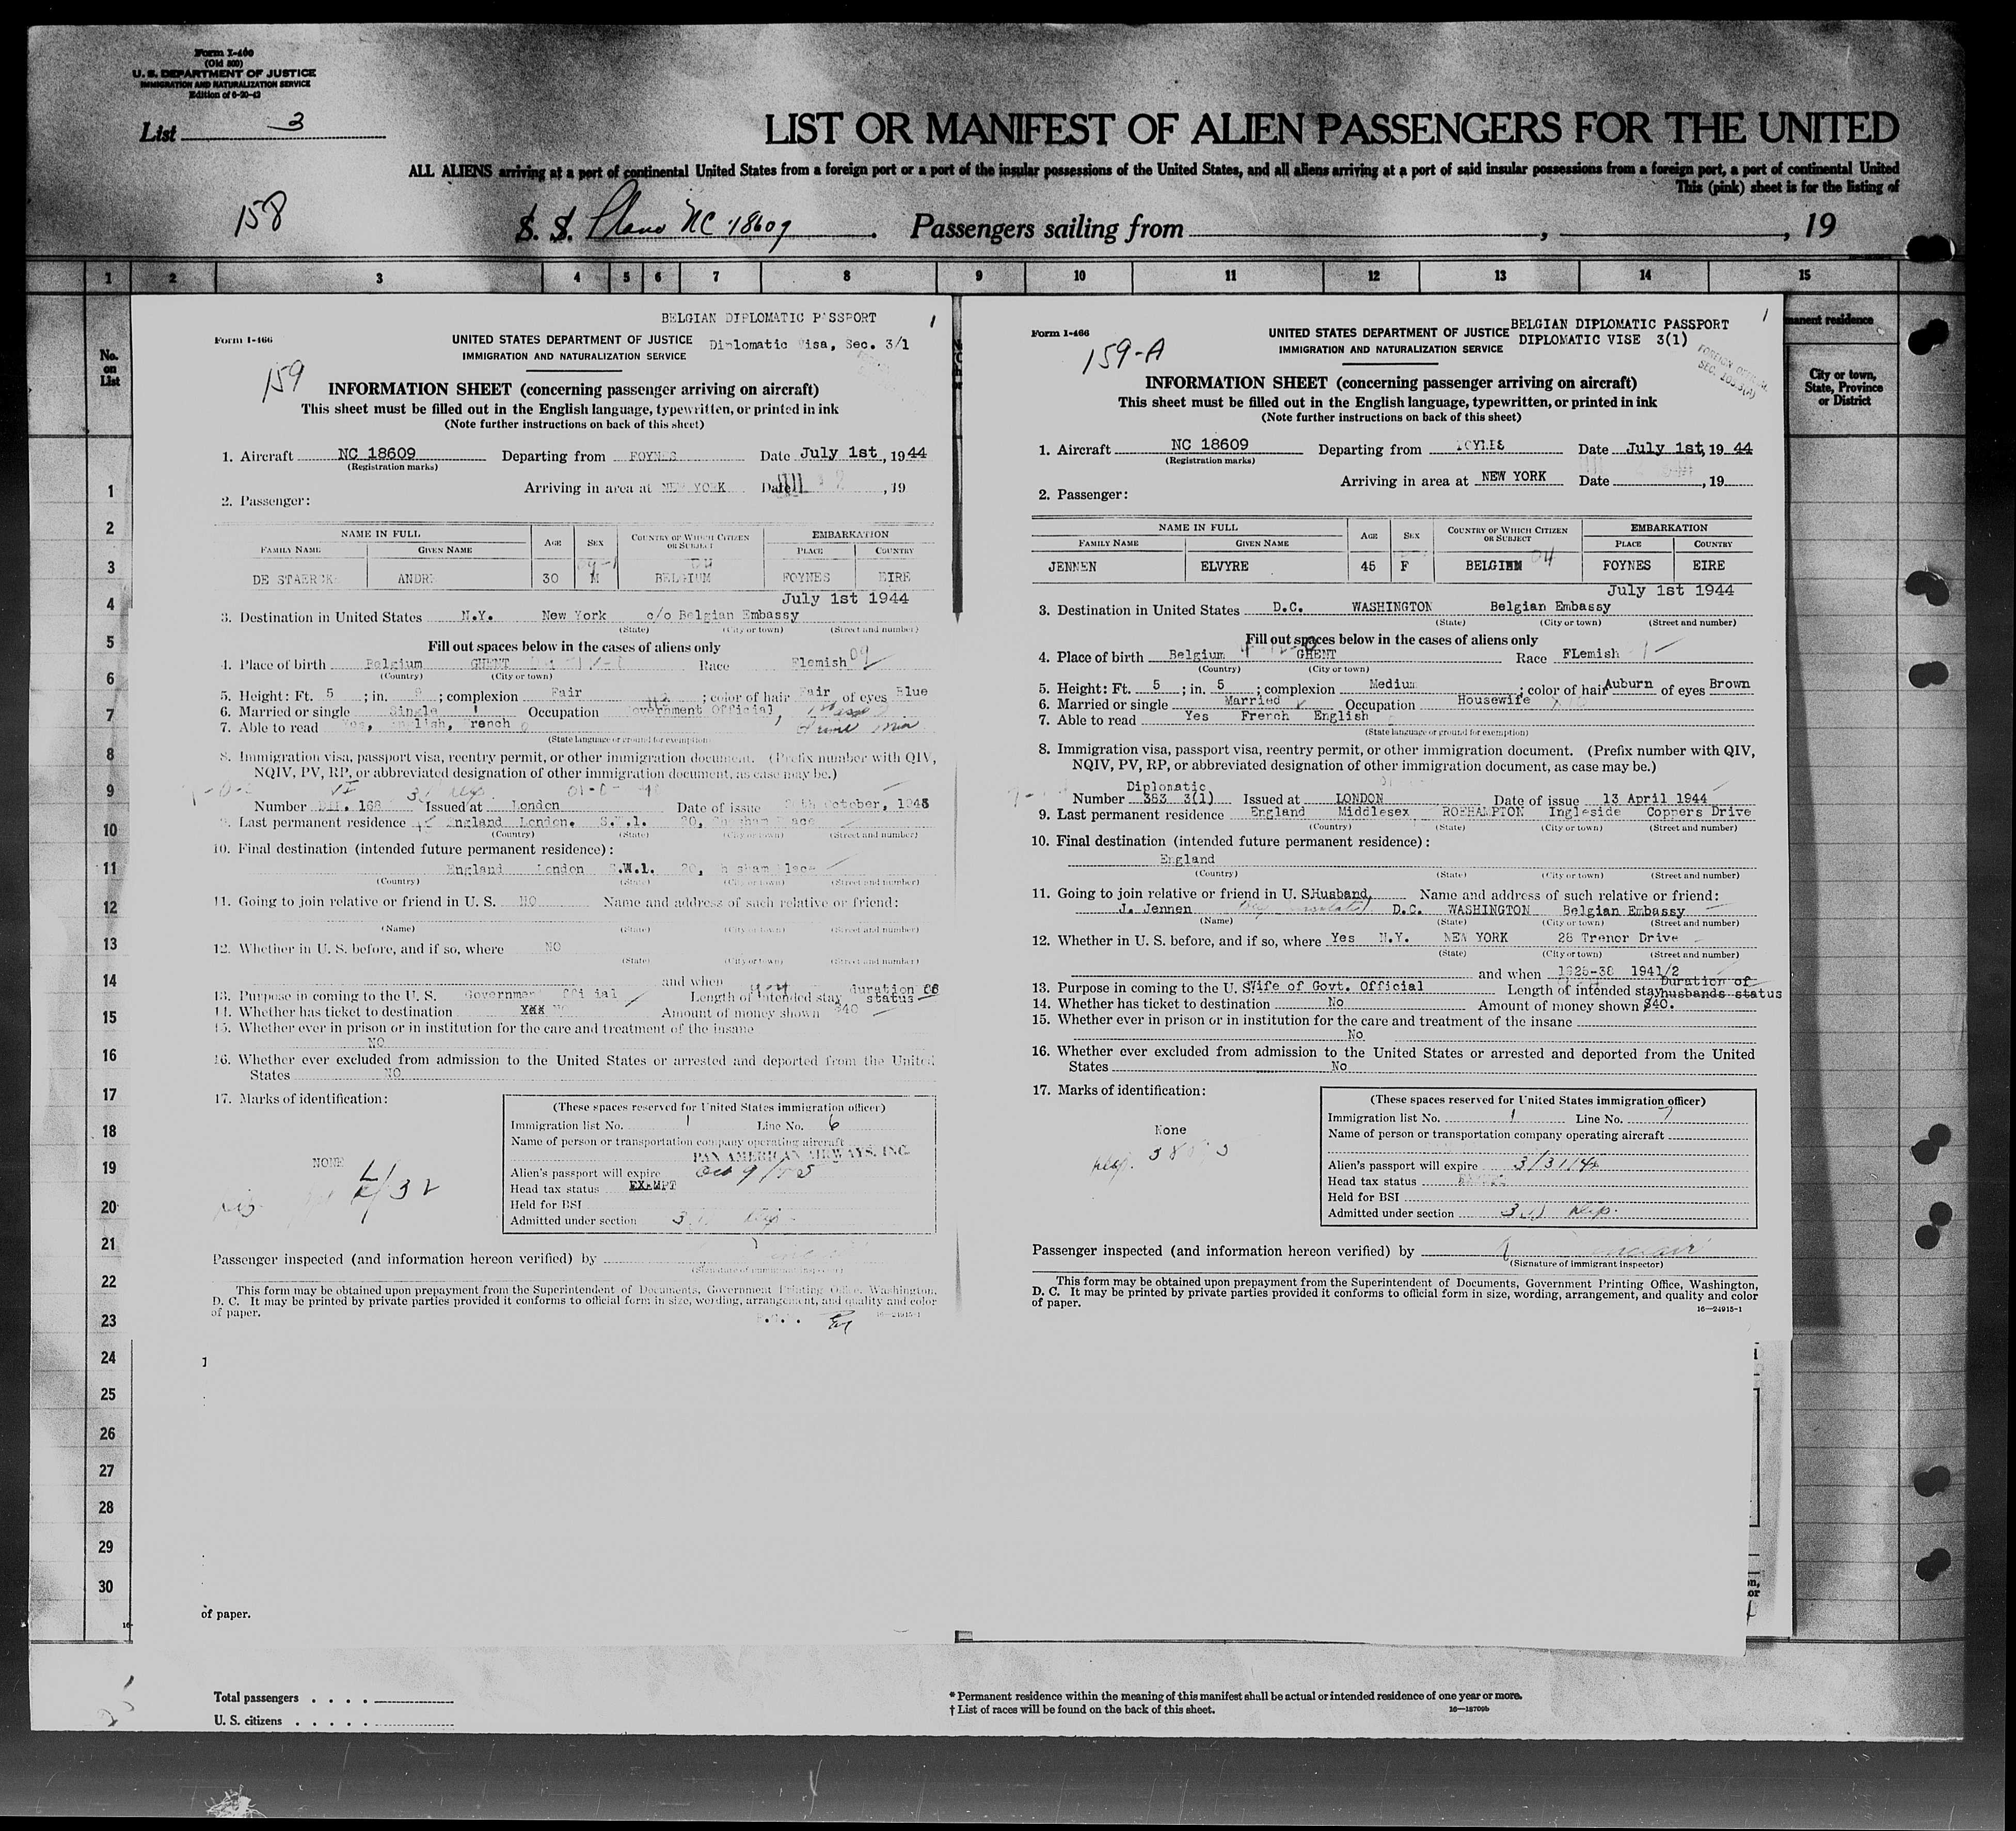 Form I-460
(Old 500)
U. S. DEPARTMENT OF JUSTICE
IMMIGRATION AND NATURALIZATION SERVICE
Edition of 6-20-43
List 3
LIST OR MANIFEST OF ALIEN PASSENGERS FOR THE UNITED
ALL ALIENS arriving at a port of continental United States from a foreign port or a port of the insular possessions of the United States, and all aliens arriving at a port of said insular possessions from a foreign port, a port of continental United
This (pink) sheet is for the listing of
158
S. S. Plane NC 18609. Passengers sailing from , , 19
1 2 3 4 5 6 7 8 9 10 11 12 13 14 15
No. on List
1
2
3
4
5
6
7
8
9
10
11
12
13
14
15
16
17
18
19
20
21
22
23
24
25
26
27
28
29
30
BELGIAN DIPLOMATIC PASSPORT 1
Form I-466
UNITED STATES DEPARTMENT OF JUSTICE Diplomatic Visa, Sec. 3/1
IMMIGRATION AND NATURALIZATION SERVICE
159
INFORMATION SHEET (concerning passenger arriving on aircraft)
This sheet must be filled out in the English language, typewritten, or printed in ink
(Note further instructions on back of this sheet)
1. Aircraft NC 18609 Departing from FOYNES Date July 1st, 1944
(Registration marks)
Arriving in area at NEW YORK Date , 19
2. Passenger:
NAME IN FULL AGE SEX COUNTRY OF WHICH CITIZEN OR SUBJECT EMBARKATION
FAMILY NAME GIVEN NAME PLACE COUNTRY
DE STAERCKE ANDRE 30 M BELGIUM FOYNES EIRE
July 1st 1944
3. Destination in United States N.Y. New York c/o Belgian Embassy
(State) (City or town) (Street and number)
Fill out spaces below in the cases of aliens only
4. Place of birth Belgium GHENT Race Flemish 09
(Country) (City or town)
5. Height: Ft. 5 ; in. ; complexion Fair ; color of hair Fair of eyes Blue
6. Married or single Single Occupation Government Official
7. Able to read Yes, English, French
(State language or ground for exemption)
8. Immigration visa, passport visa, reentry permit, or other immigration document. (Prefix number with QIV,
NQIV, PV, RP, or abbreviated designation of other immigration document, as case may be.)
Number DIP. 168 Issued at London Date of issue October, 1943
9. Last permanent residence England London. S.W.1. 20, Chesham Place
(Country) (State) (City or town) (Street and number)
10. Final destination (intended future permanent residence):
England London S.W.1. 20, Chesham Place
(Country) (State) (City or town) (Street and number)
11. Going to join relative or friend in U. S. NO Name and address of such relative or friend:
(Name) (State) (City or town) (Street and number)
12. Whether in U. S. before, and if so, where NO
(State) (City or town) (Street and number)
and when
13. Purpose in coming to the U. S. Government Official Length of intended stay duration of status
14. Whether has ticket to destination Yes NO Amount of money shown $40
15. Whether ever in prison or in institution for the care and treatment of the insane
NO
16. Whether ever excluded from admission to the United States or arrested and deported from the United
States NO
17. Marks of identification:
NONE
(These spaces reserved for United States immigration officer)
Immigration list No. 1 Line No. 6
Name of person or transportation company operating aircraft
PAN AMERICAN AIRWAYS, INC.
Alien's passport will expire Oct 9/
Head tax status EXEMPT
Held for BSI
Admitted under section 3(1) Dip.
Passenger inspected (and information hereon verified) by
(Signature of immigrant inspector)
This form may be obtained upon prepayment from the Superintendent of Documents, Government Printing Office, Washington,
D. C. It may be printed by private parties provided it conforms to official form in size, wording, arrangement, and quality and color
of paper. 16—24915-1
of paper.
BELGIAN DIPLOMATIC PASSPORT 1
Form I-466
UNITED STATES DEPARTMENT OF JUSTICE DIPLOMATIC VISE 3(1)
IMMIGRATION AND NATURALIZATION SERVICE
159-A
INFORMATION SHEET (concerning passenger arriving on aircraft)
This sheet must be filled out in the English language, typewritten, or printed in ink
(Note further instructions on back of this sheet)
1. Aircraft NC 18609 Departing from FOYNES Date July 1st, 19 44
(Registration marks)
Arriving in area at NEW YORK Date , 19
2. Passenger:
NAME IN FULL AGE SEX COUNTRY OF WHICH CITIZEN OR SUBJECT EMBARKATION
FAMILY NAME GIVEN NAME PLACE COUNTRY
JENNEN ELVYRE 45 F BELGIUM 04 FOYNES EIRE
July 1st 1944
3. Destination in United States D.C. WASHINGTON Belgian Embassy
(State) (City or town) (Street and number)
Fill out spaces below in the cases of aliens only
4. Place of birth Belgium GHENT Race FLemish
(Country) (City or town)
5. Height: Ft. 5 ; in. 5 ; complexion Medium ; color of hair Auburn of eyes Brown
6. Married or single Married Occupation Housewife
7. Able to read Yes French English
(State language or ground for exemption)
8. Immigration visa, passport visa, reentry permit, or other immigration document. (Prefix number with QIV,
NQIV, PV, RP, or abbreviated designation of other immigration document, as case may be.)
Diplomatic
Number 383 3(1) Issued at LONDON Date of issue 13 April 1944
9. Last permanent residence England Middlesex ROEHAMPTON Ingleside Coppers Drive
(Country) (State) (City or town) (Street and number)
10. Final destination (intended future permanent residence):
England
(Country) (State) (City or town) (Street and number)
11. Going to join relative or friend in U. S. Husband, Name and address of such relative or friend:
J. Jennen D.C. WASHINGTON Belgian Embassy
(Name) (State) (City or town) (Street and number)
12. Whether in U. S. before, and if so, where Yes N.Y. NEW YORK 28 Trenor Drive
(State) (City or town) (Street and number)
and when 1925-38 1941/2
13. Purpose in coming to the U. S. Wife of Govt. Official Length of intended stay Duration of husbands status
14. Whether has ticket to destination No Amount of money shown $40.
15. Whether ever in prison or in institution for the care and treatment of the insane
No
16. Whether ever excluded from admission to the United States or arrested and deported from the United
States No
17. Marks of identification:
None
(These spaces reserved for United States immigration officer)
Immigration list No. 1 Line No. 7
Name of person or transportation company operating aircraft
Alien's passport will expire 3/31/46
Head tax status
Held for BSI
Admitted under section 3(1) Dip.
Passenger inspected (and information hereon verified) by
(Signature of immigrant inspector)
This form may be obtained upon prepayment from the Superintendent of Documents, Government Printing Office, Washington,
D. C. It may be printed by private parties provided it conforms to official form in size, wording, arrangement, and quality and color
of paper. 16—24915-1
manent residence
City or town,
State, Province
or District
Total passengers . . . .
U. S. citizens . . . . .
* Permanent residence within the meaning of this manifest shall be actual or intended residence of one year or more.
† List of races will be found on the back of this sheet. 16—18709b